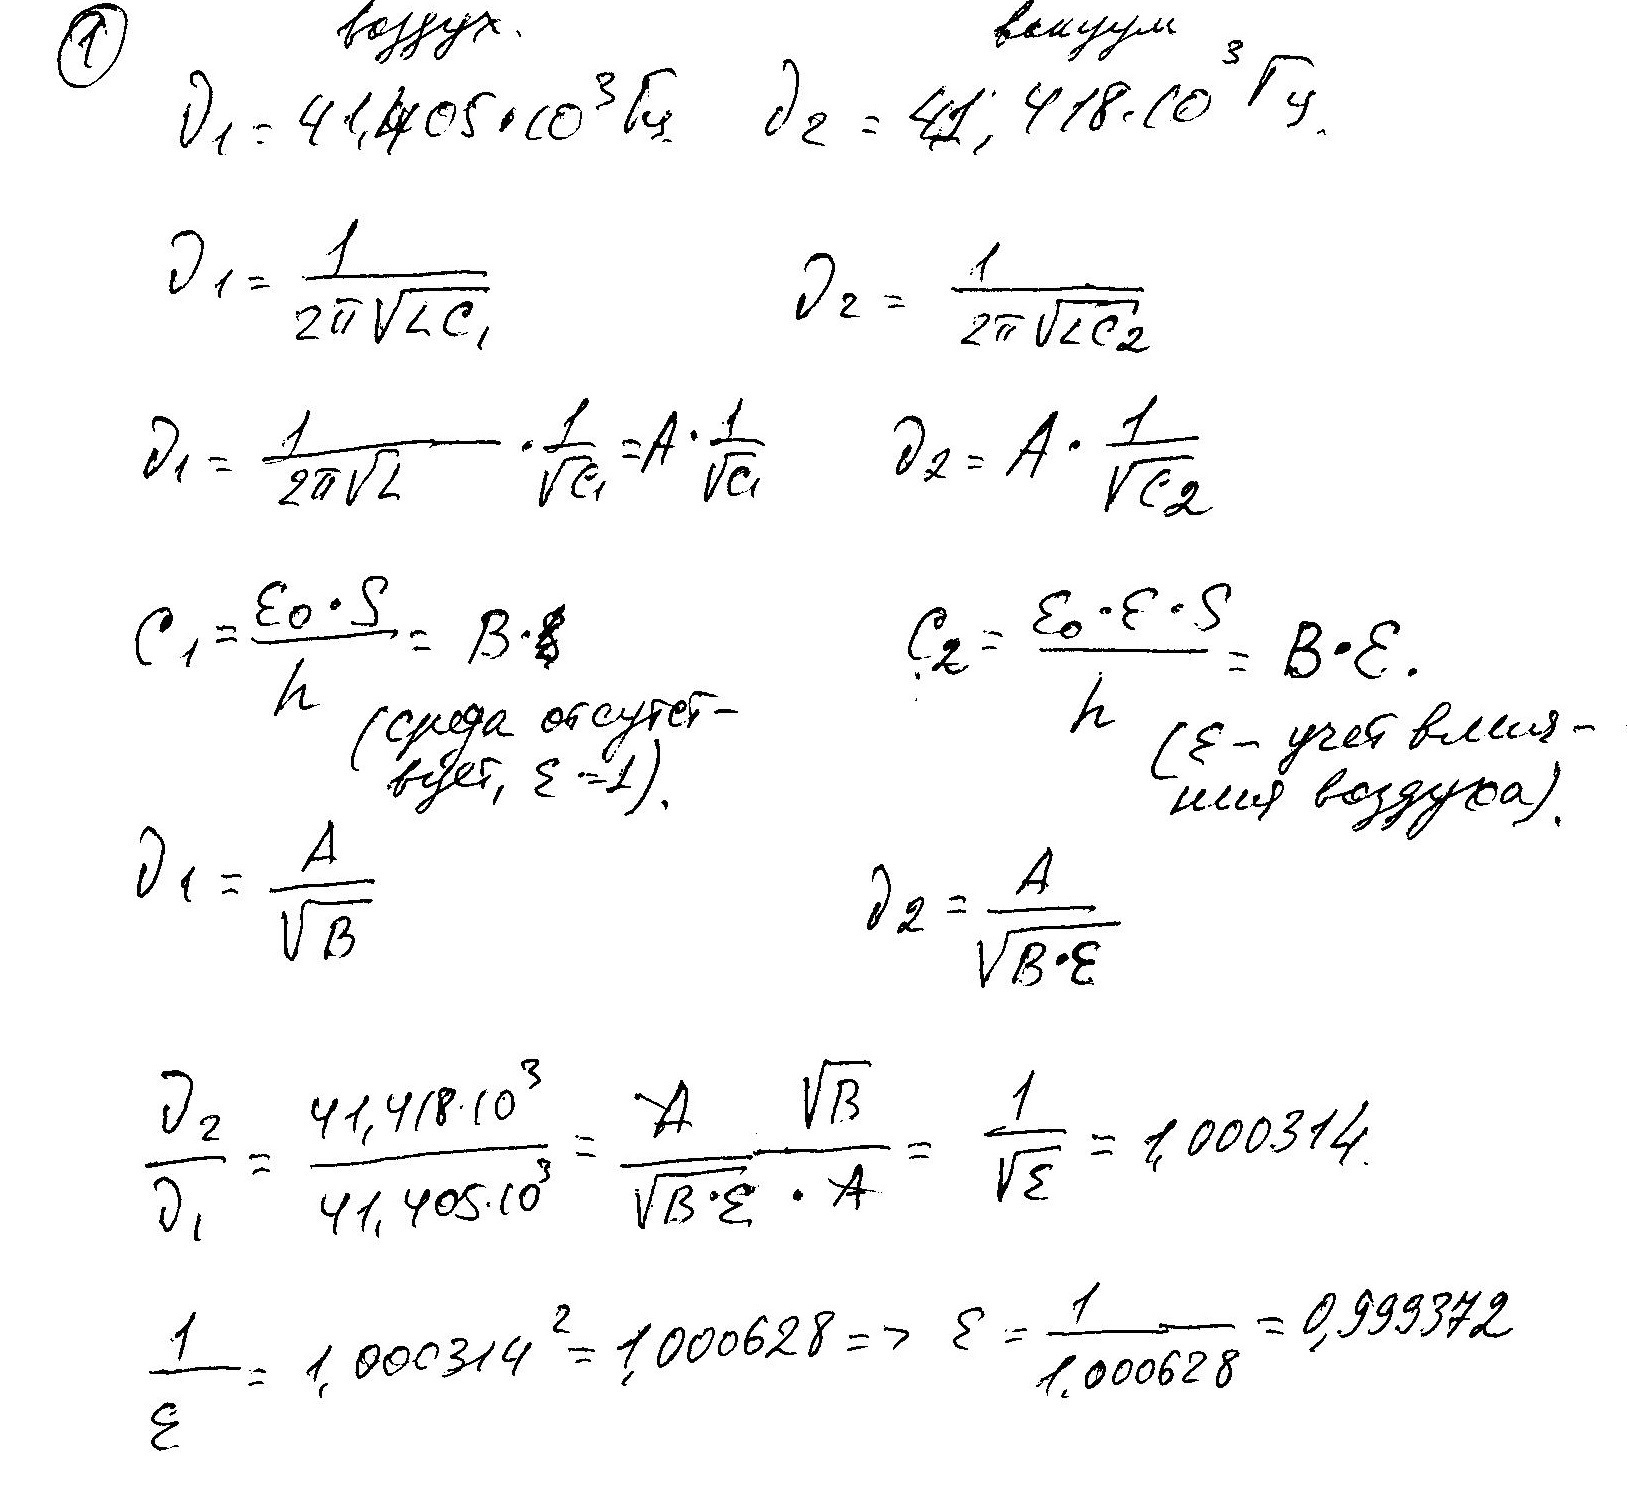 ① воздух. вакуум
∂₁ = 41,405·10³ Гц. ∂₂ = 41, 418·10³ Гц.
∂₁ = 1/(2π√(LC₁)) ∂₂ = 1/(2π√(LC₂))
∂₁ = 1/(2π√L) · 1/√C₁ = A · 1/√C₁ ∂₂ = A · 1/√C₂
C₁ = (ε₀·S)/h = B· C₂ = (ε₀·ε·S)/h = B·ε.
(среда отсутст- (ε – учет влия-
вует, ε = 1). ния воздуха).
∂₁ = A/√B ∂₂ = A/√(B·ε)
∂₂/∂₁ = (41,418·10³)/(41,405·10³) = (A √B)/(√(B·ε) · A) = 1/√ε = 1,000314.
1/ε = 1,000314² = 1,000628 => ε = 1/1.000628 = 0,999372